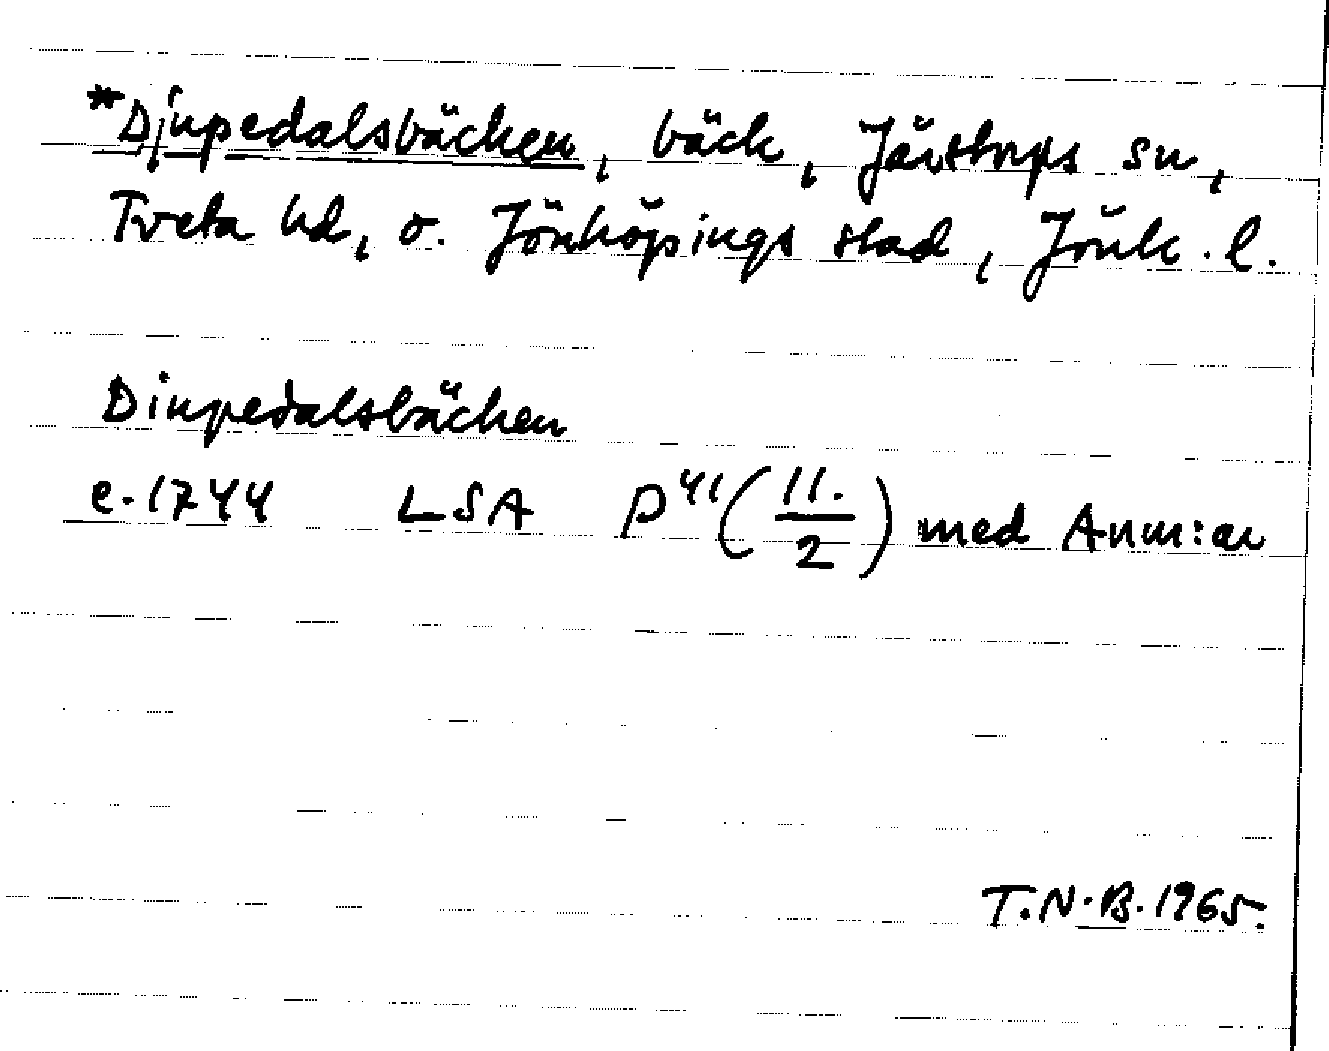 *Djupedalsbäcken, bäck, Järstorps sn,
Tveta hd, o. Jönköpings stad, Jönk. l.
Diupedalsbäcken
c. 1744 LSA P⁴¹ (11./2) med Anm:ar
T.N.B. 1965.